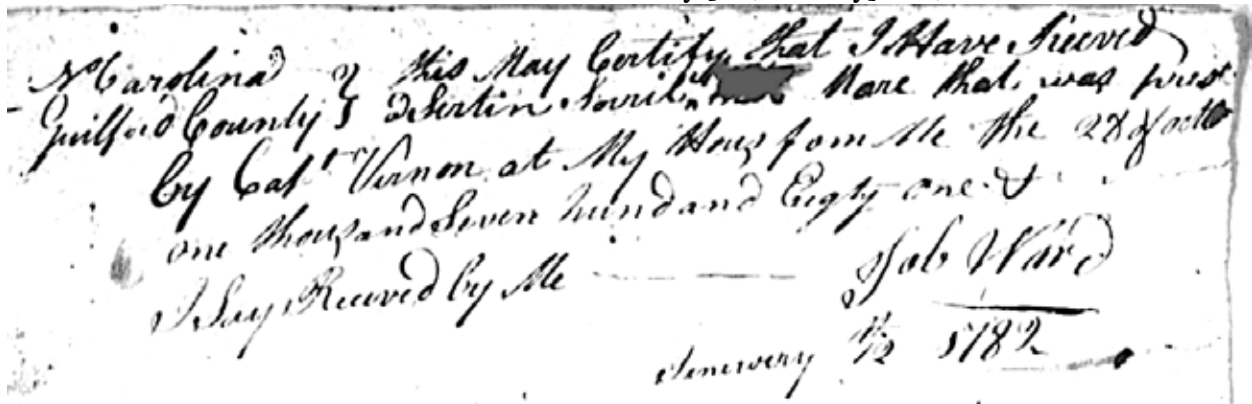 No Carolina } this May Certify that I Have Receved
Guilford County } a sertin Sorril Mare that was prest
by Capt Vernon at My Hous from Me the 28 of octb
one thousand Seven hund and Eigty one &
I Say Receved by Me
Job Ward
Jenewery 12 1782